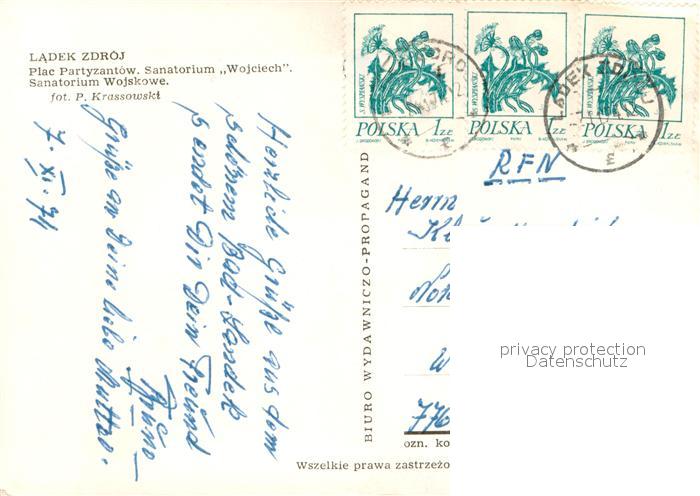 LĄDEK ZDRÓJ
Plac Partyzantów. Sanatorium „Wojciech".
Sanatorium Wojskowe.
fot. P. Krassowski
Herzliche Grüße aus dem
schönen Bad-Landek
sendet Dir Dein Freund
Bruno
Grüße an Deine liebe Mutter.
7. XI. 74
BIURO WYDAWNICZO-PROPAGAND
S. WYSPIAŃSKI
POLSKA 1 ZŁ
S. WYSPIAŃSKI
POLSKA 1 ZŁ
S. WYSPIAŃSKI
POLSKA 1 ZŁ
LĄDEK ZDRÓJ
RFN
Herrn
W
776
ozn. ko
Wszelkie prawa zastrzeżo
privacy protection
Datenschutz